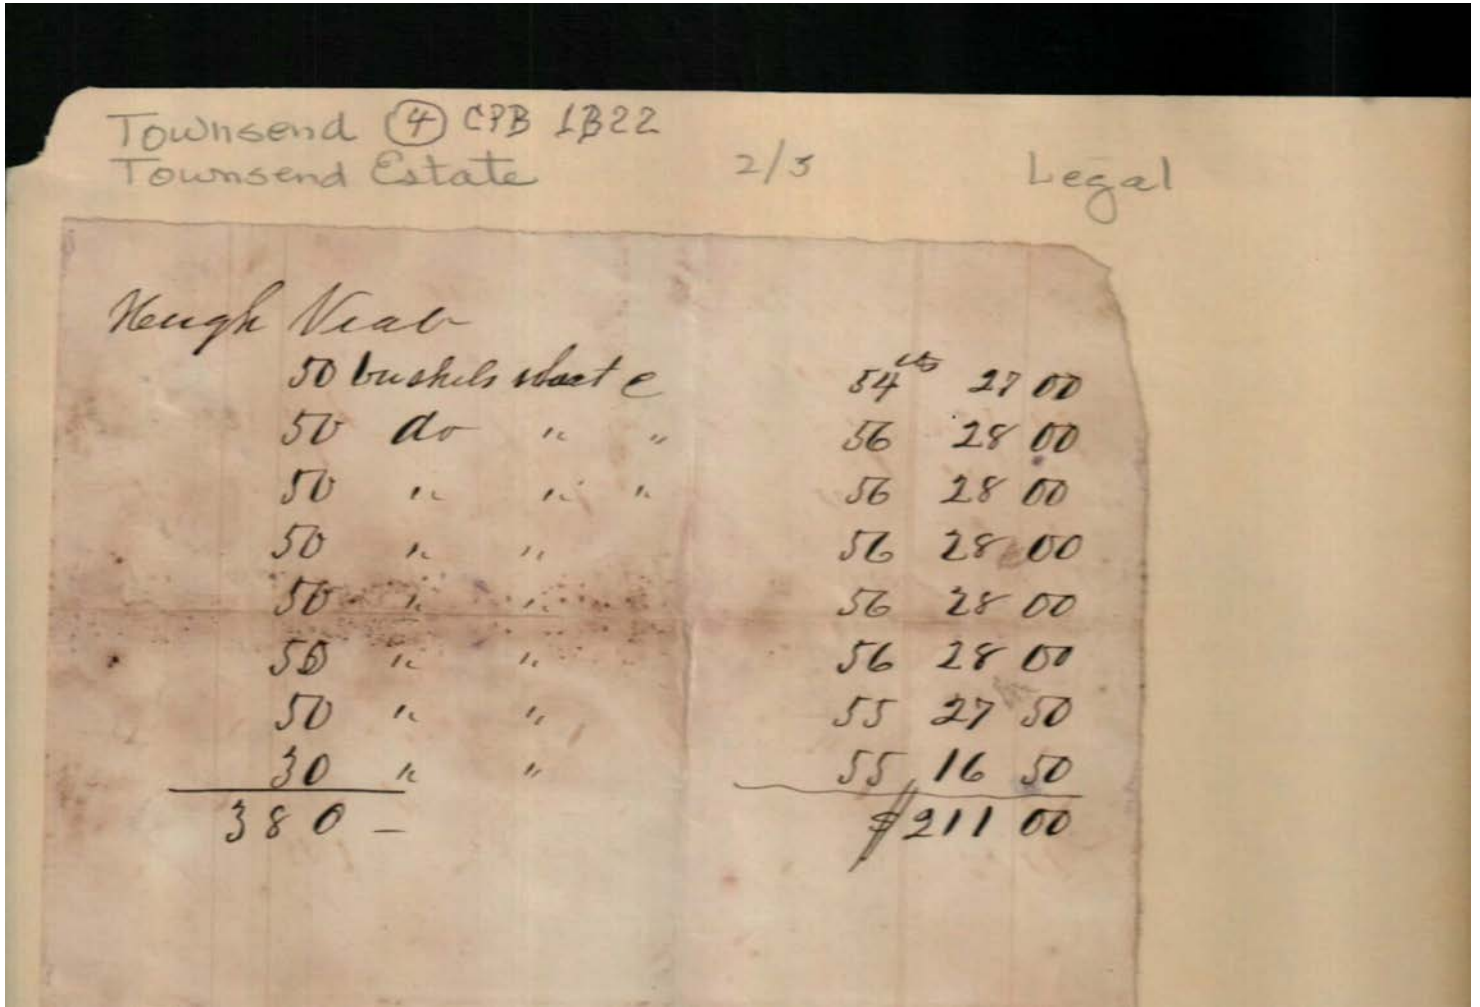 Townsend ④ CPB 1B22
Townsend Estate 2/3 Legal
Hugh
50 bushels wheat @ 54 cts 27 00
50 do " " 56 28 00
50 " " " 56 28 00
50 " " 56 28 00
50 " " 56 28 00
50 " " 56 28 00
50 " " 55 27 50
30 " " 55 16 50
380 – $211 00